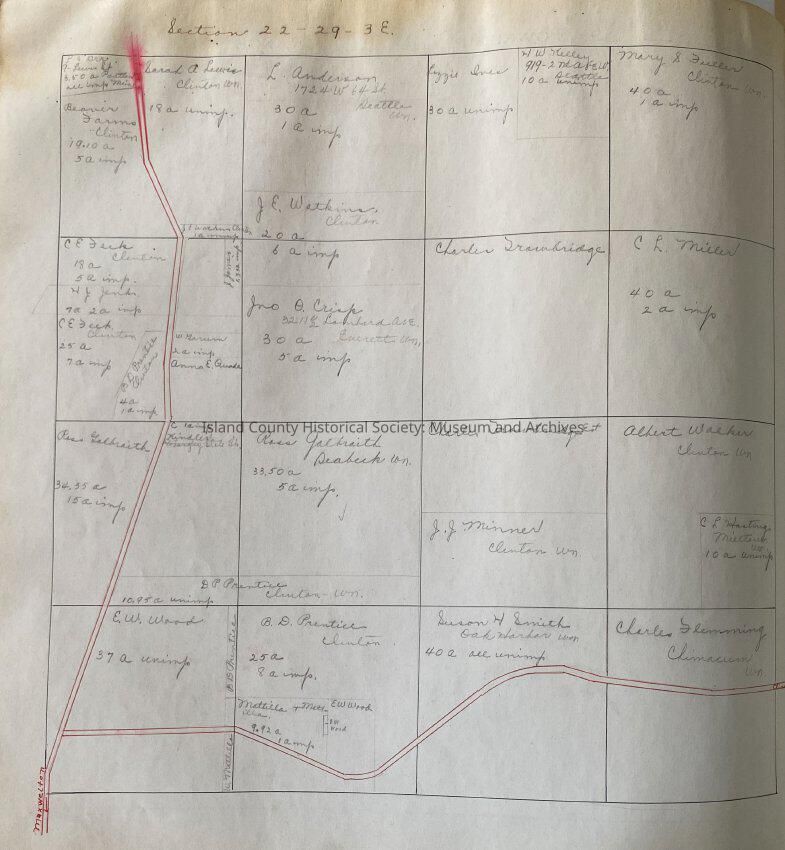 Section 22-29-3E.
9. Lewis
3.50 a
all imp
Beaver
Farms
Clinton
19.10 a
5 a imp
Sarah A Lewis
Clinton Wn.
18 a unimp.
L. Anderson
1724 W 64 St.
Seattle
Wn.
30 a
1 a imp
Lizzie Ives
30 a unimp
H W Kelley
919-2nd Ave W
Seattle
10 a unimp
Mary S Fuller
Clinton Wn.
40 a
1 a imp
J. E. Watkins.
Clinton
20 a
6 a imp
C E Feek
Clinton
18 a
5 a imp.
H J Jenks
7 a 2 a imp
C E Feek
Clinton
25 a
7 a imp
B D Prentice
Clinton
4 a
1 a imp
2 a imp
Anna E. Quade
Jno O. Crisp
3211½ Lombard Ave.
Everett Wn.
30 a
5 a imp
Charles Trowbridge
C L. Miller
40 a
2 a imp
Island County Historical Society: Museum and Archives
Ross Galbraith
34.35 a
15 a imp
Ross Galbraith
Seabeck Wn.
33.50 a
5 a imp.
Albert Walker
Clinton Wn
J. J Minner
Clinton Wn.
C L Hastings
10 a unimp
D P Prentice
Clinton Wn.
10.95 a unimp
E. W. Wood
37 a unimp
B D Prentice
B. D. Prentice
Clinton
25 a
8 a imp.
Susan H Smith
Oak Harbor Wn
40 a all unimp
Charles Flemming
Chimacum
Wn.
Mattilla
9.92 a
1 a imp
E W Wood
E W
Wood
Maxwelton